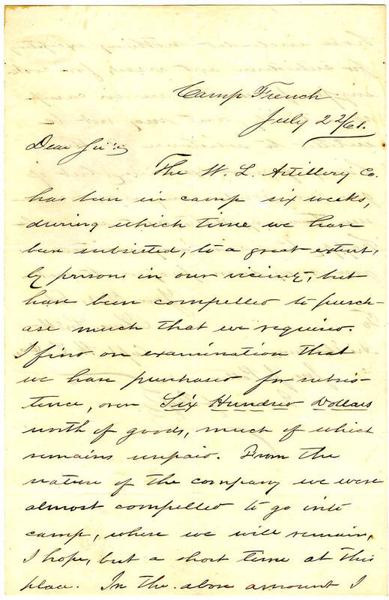 Camp French
July 22/61.
Dear Sir;
The W. L. Artillery Co.
has been in camp six weeks,
during which time we have
been subsisted, to a great extent,
by persons in our vicinity, but
have been compelled to purch-
ase much that we required.
I find on examination that
we have purchased for subsis-
tence, over Six Hundred Dollars
worth of goods, much of which
remains unpaid. From the
nature of the company we were
almost compelled to go into
camp, where we will remain,
I hope, but a short time at this
place. In the above amount I